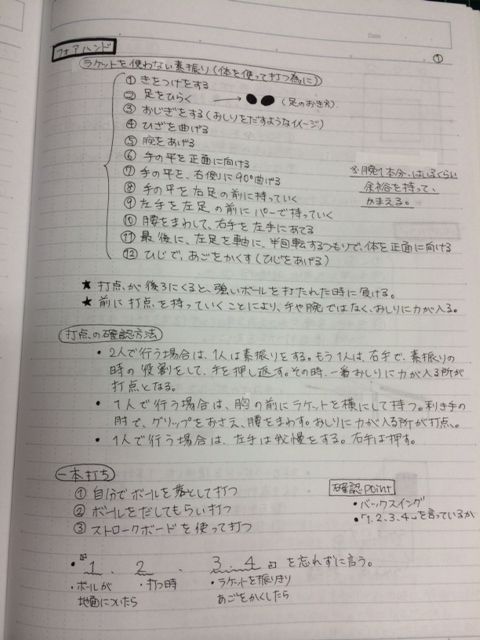 フォアハンド
①
ラケットを使わない素振り(体を使って打つ為に)
① きをつけをする
② 足をひらく → (足のおき方)
③ おじぎをする(おしりをだすようなイメージ)
④ ひざを曲げる
⑤ 腕をあげる
⑥ 手の平を正面に向ける
⑦ 手の平を、右側に90°曲げる
⑧ 手の平を右足の前に持っていく
⑨ 左手を左足の前にパーで持っていく
⑩ 腰をまわして、右手を左手にあてる
⑪ 最後に、左足を軸に、半回転するつもりで、体を正面に向ける
⑫ ひじで、あごをかくす(ひじをあげる)
※腕1本分、はいるくらい
余裕を持って、
かまえる。
★ 打点が後ろにくると、強いボールを打たれた時に負ける。
★ 前に打点を持っていくことにより、手や腕ではなく、おしりに力が入る。
打点の確認方法
・2人で行う場合は、1人は素振りをする。もう1人は、右手で、素振りの
時の役割をして、手を押し返す。その時、一番おしりに力が入る所が
打点となる。
・1人で行う場合は、胸の前にラケットを横にして持つ。利き手の
肘で、グリップをおさえ、腰をまわす。おしりに力が入る所が打点。
・1人で行う場合は、左手は我慢をする。右手は押す。
一本打ち
① 自分でボールを落として打つ
② ボールをだしてもらい打つ
③ ストロークボードを使って打つ
確認point
・バックスイング
・「1.2.3.4」を言っているか
・「1 . 2 . 3 . 4」を忘れずに言う。
・ボールが
地面についたら
・打つ時
・ラケットを振りきり
あごをかくしたら